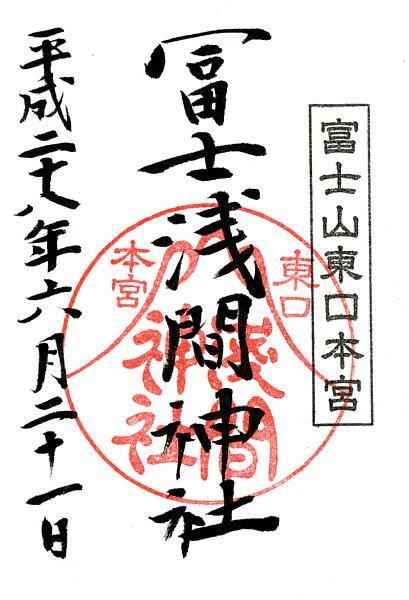 富士山東口本宮
冨士浅間神社
東口
本宮
浅間
神社
平成二十八年六月二十一日